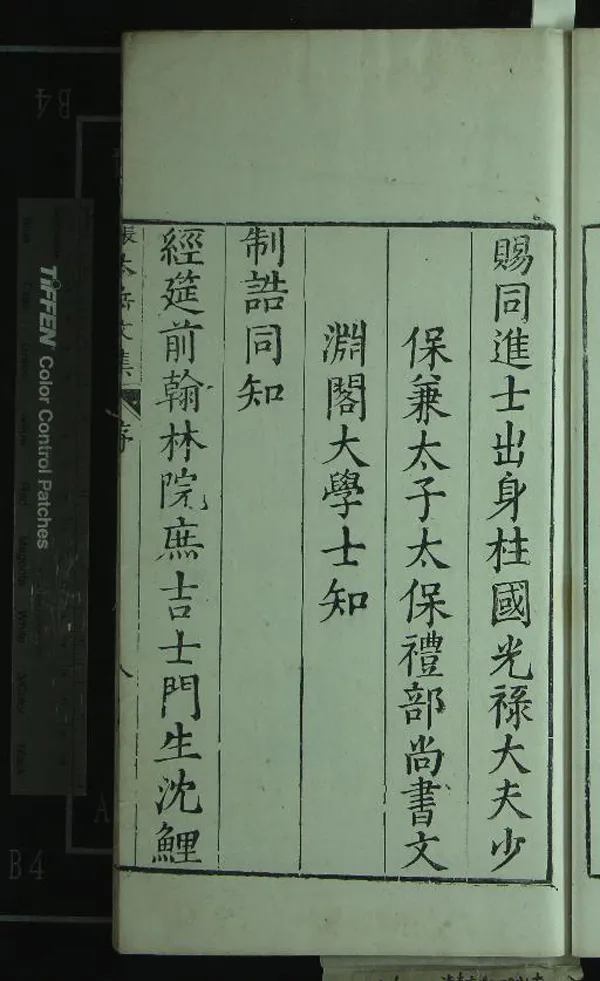 賜同進士出身柱國光祿大夫少
保兼太子太保禮部尚書文
淵閣大學士知
制誥同知
經筵前翰林院庶吉士門生沈鯉
張太岳文集
序
八
TIFFEN Color Control Patches
B4
B4